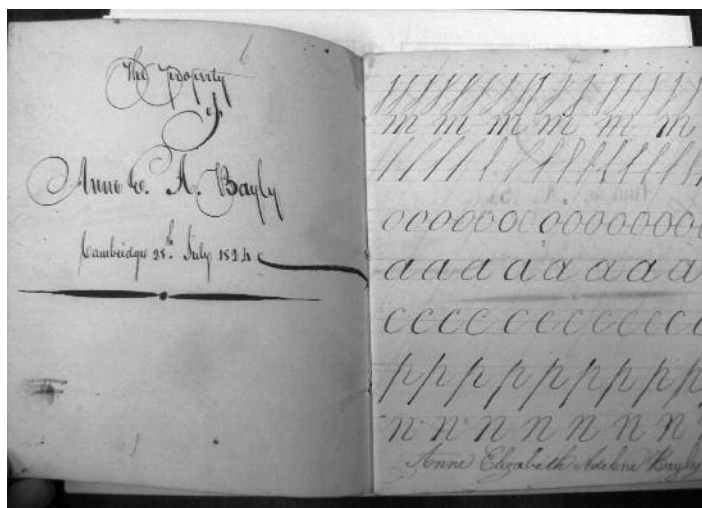 6
The property
of
Anne E. A. Bayly
Cambridge 28th July 1824
m m m m m m
o o o o o o o o o o o o o o
a a a a a a a a a
c c c c c c c c c c c c
p p p p p p p p p
n n n n n n n
Anne Elizabeth Adeline Bayly